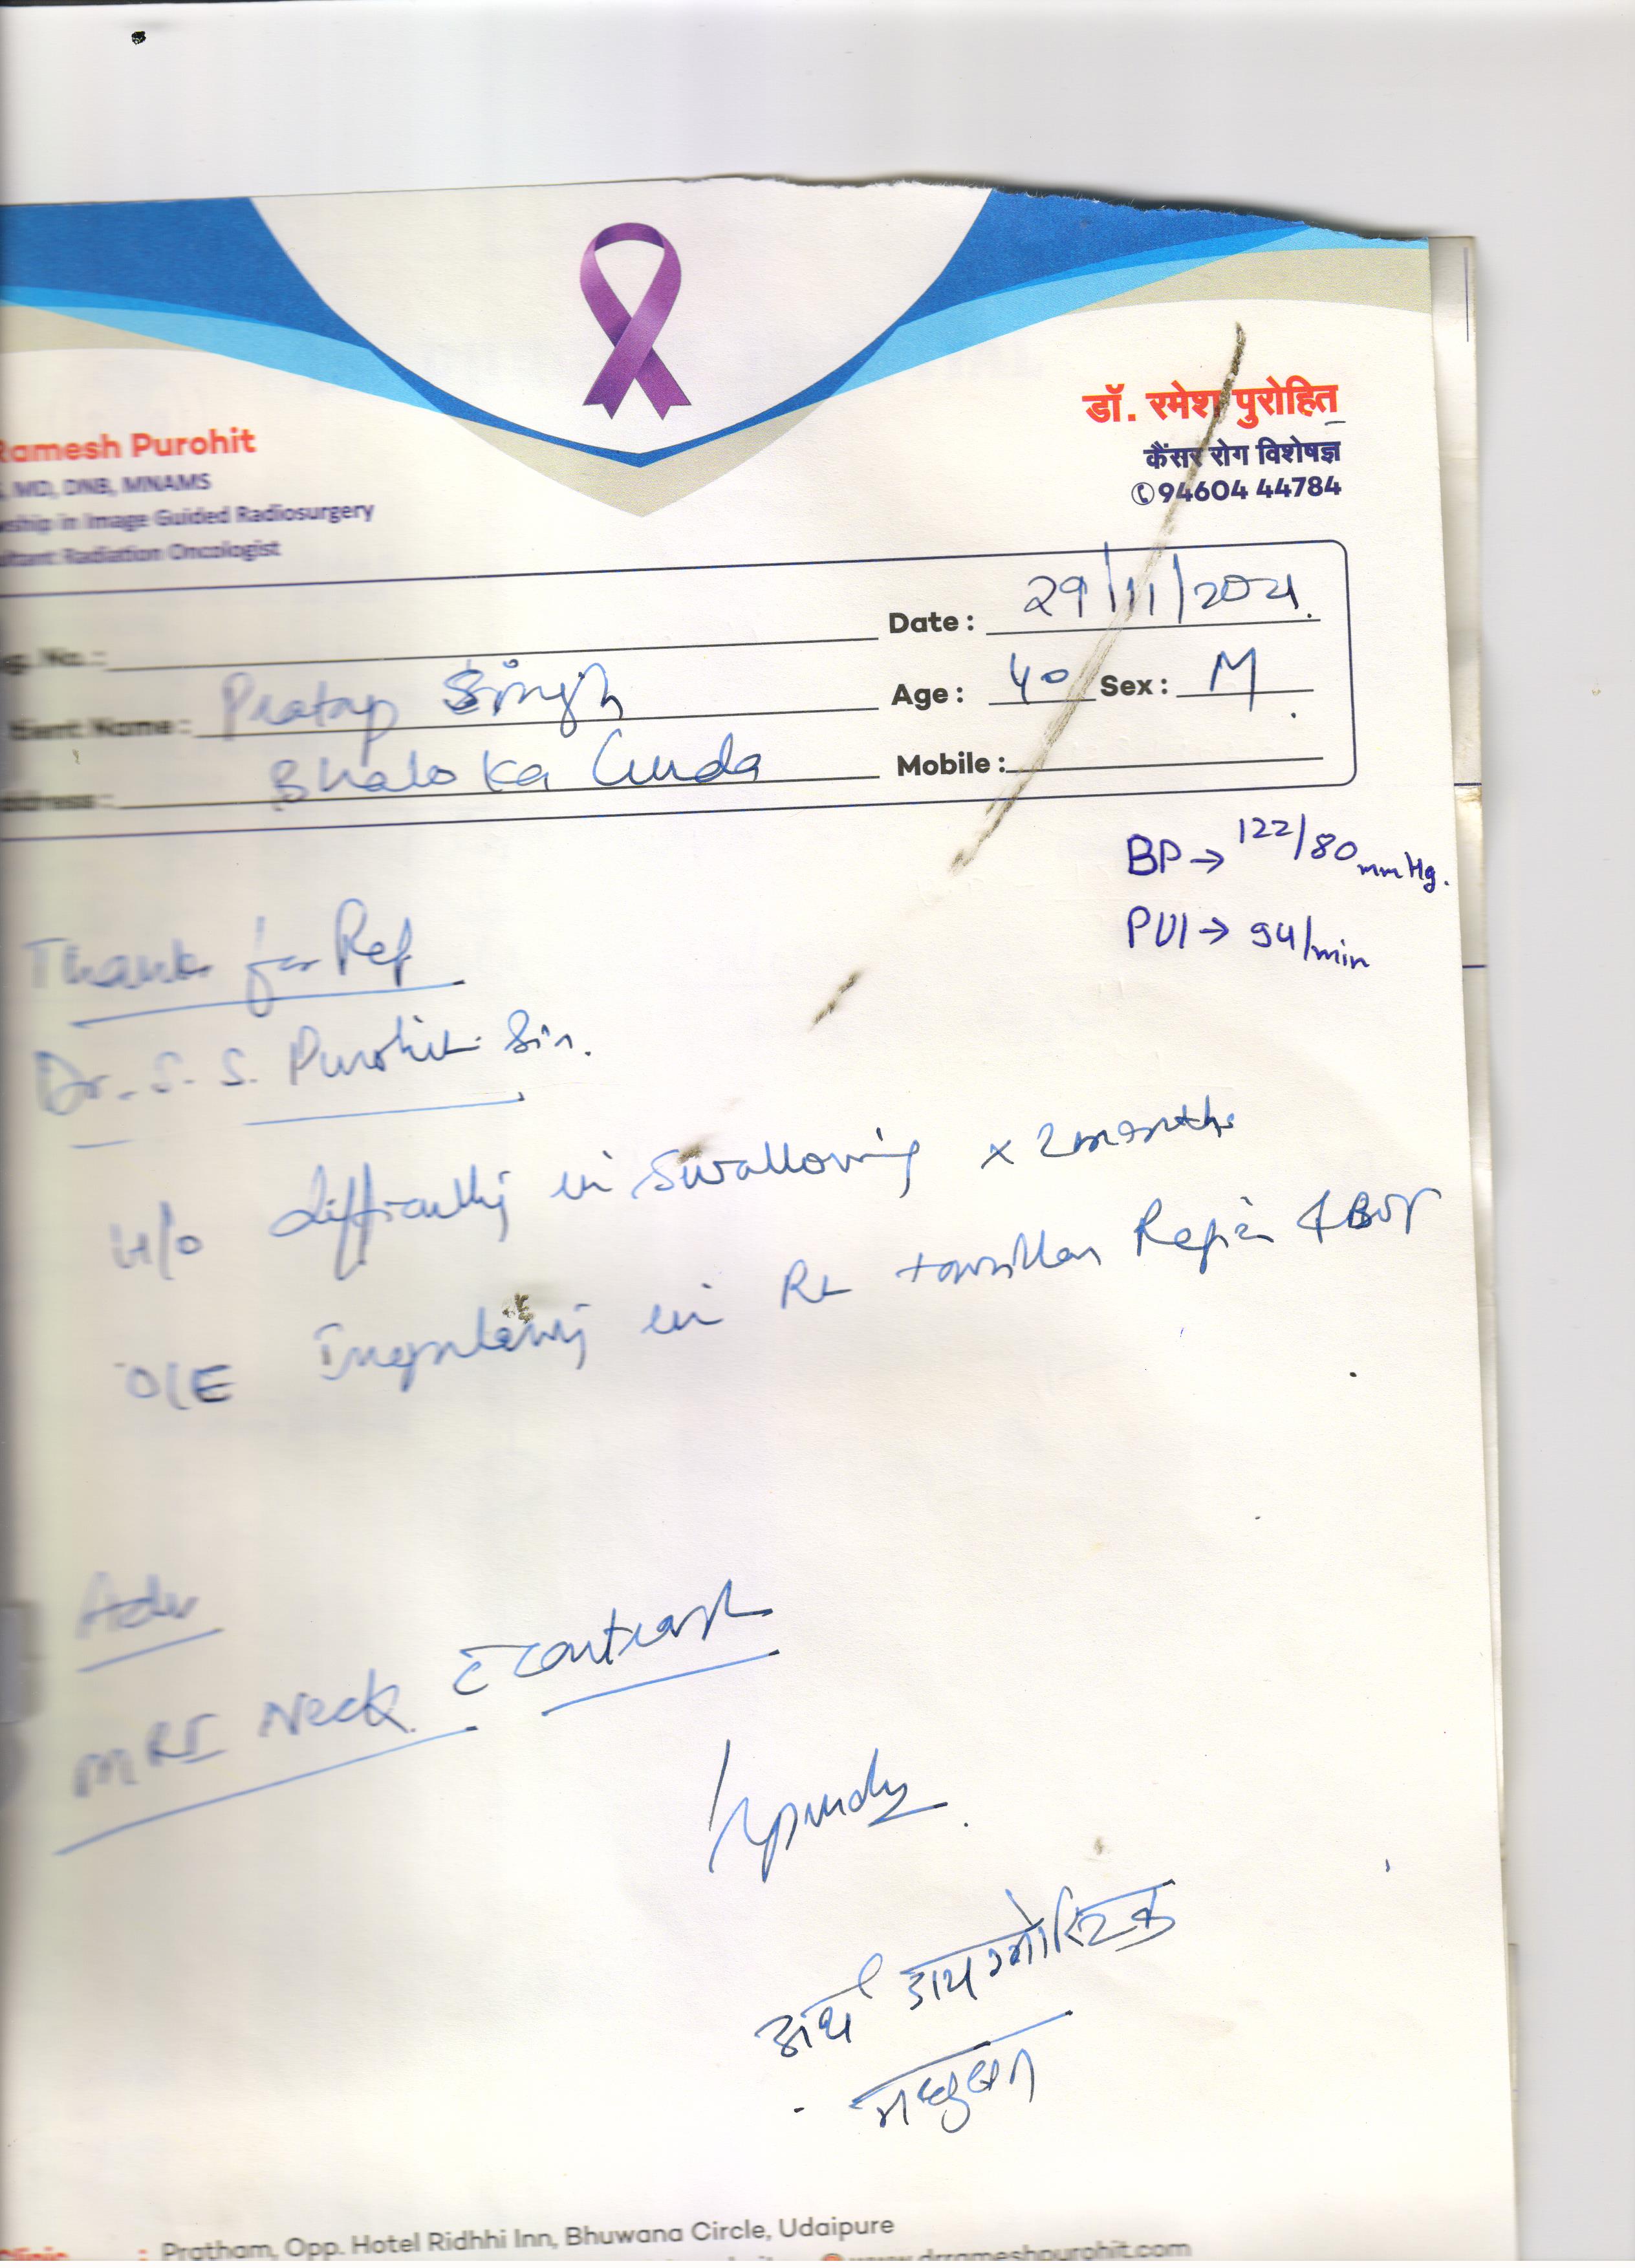 Ramesh Purohit
MD, DNB, MNAMS
in Image Guided Radiosurgery
Radiation Oncologist
डॉ. रमेश पुरोहित
कैंसर रोग विशेषज्ञ
94604 44784
Date : 29/11/2021
No. :
Name : Pratap Singh
Age : 40 Sex : M
Bhalo Ka Guda
Mobile :
BP → 122/80 mmHg.
PUl → 94/min
Thank for Ref
Dr. S. S. Purohit Sir.
H/o difficulty in Swallowing x 2 months
O/E Irregularity in Rt tonsillar Region & BOT
Adv
MRI Neck c̄ contrast
अर्थ डायग्नोस्टिक
मधुबन
: Pratham, Opp. Hotel Ridhhi Inn, Bhuwana Circle, Udaipure
www.drrameshpurohit.com